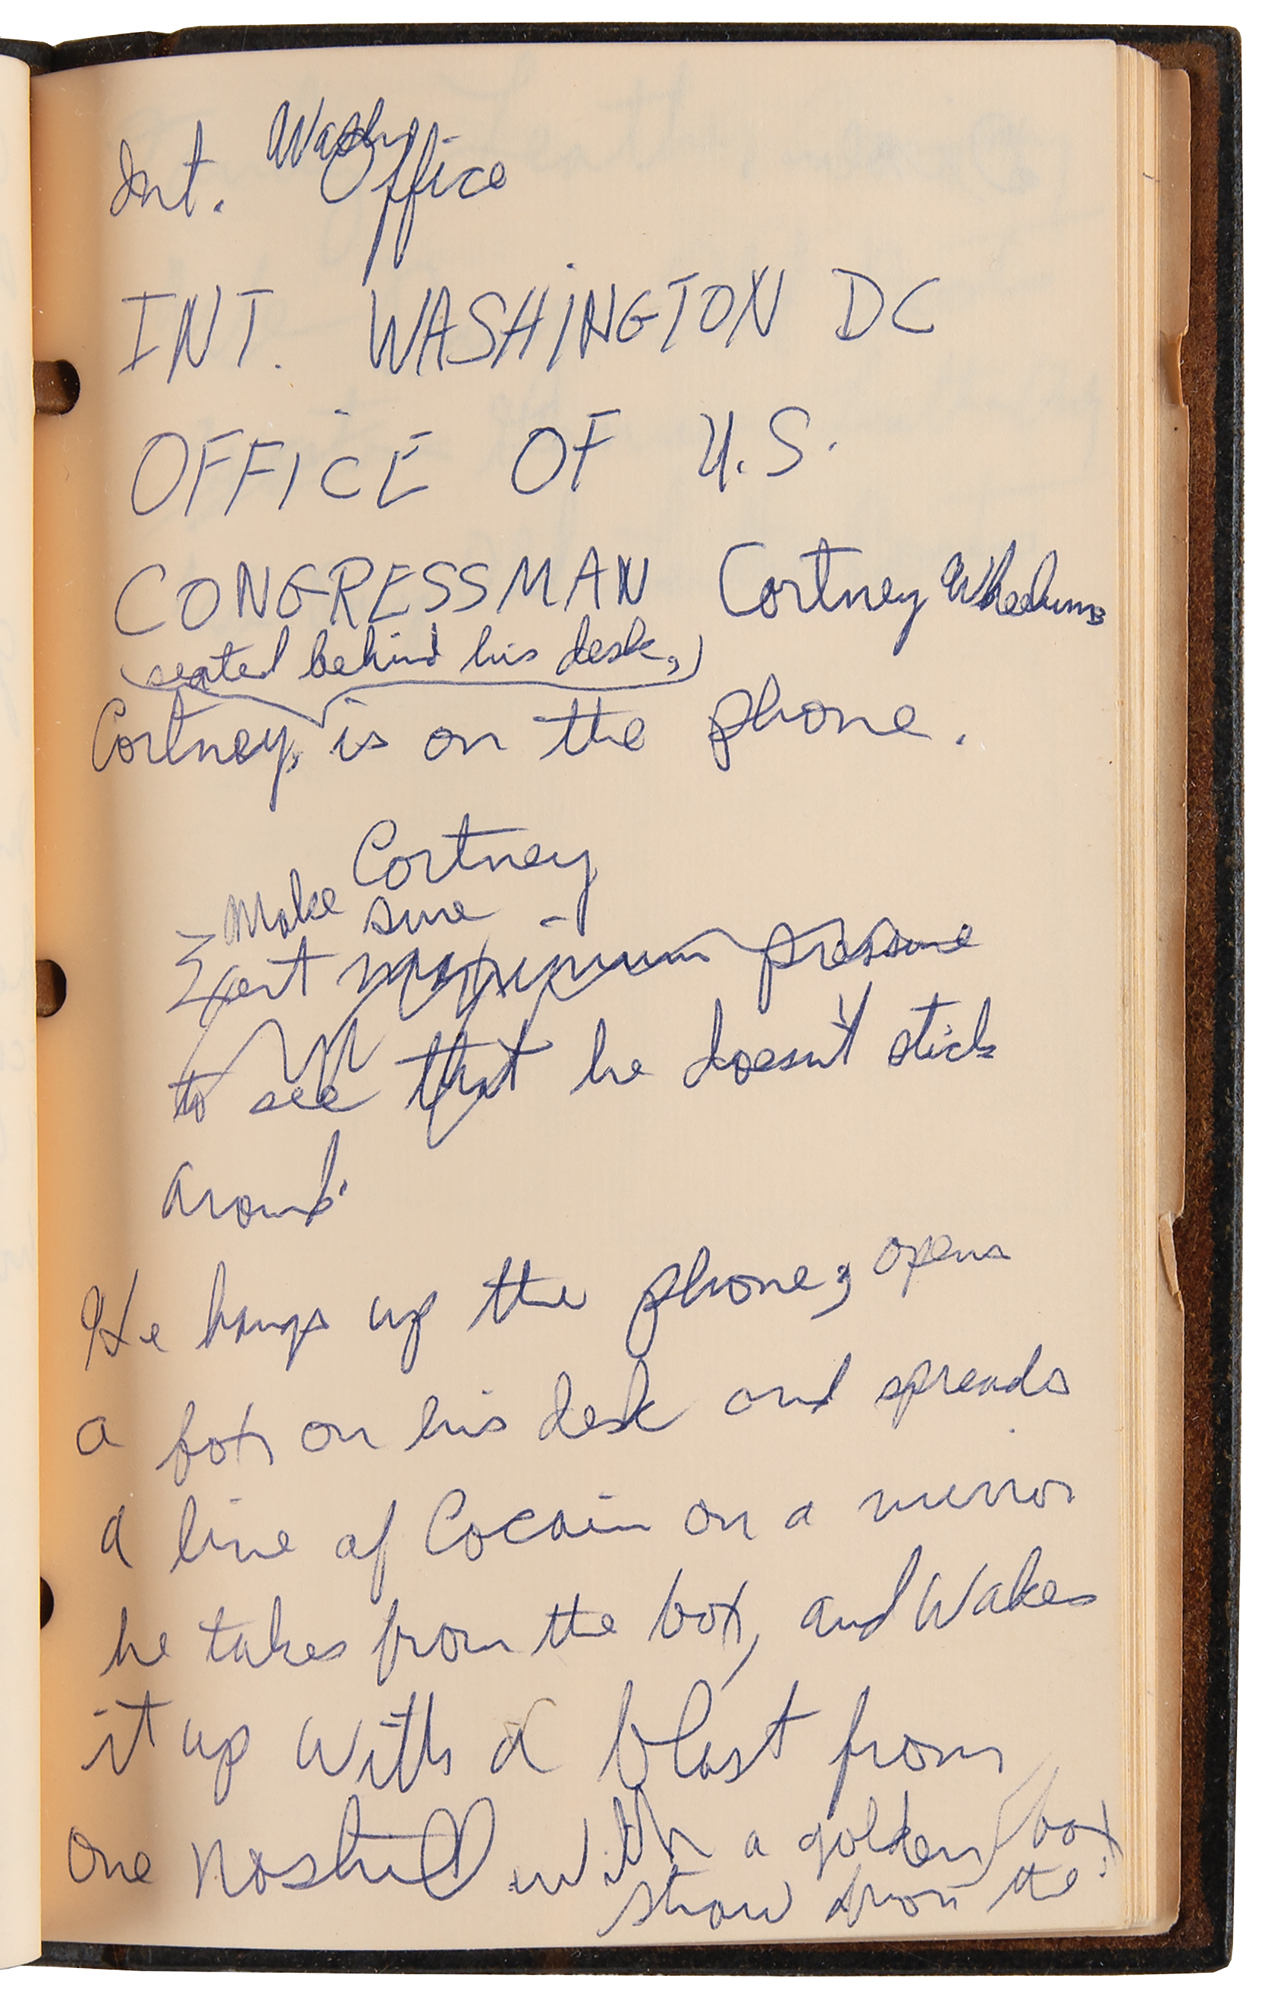 Int. Wash Office
INT. WASHINGTON DC
OFFICE OF U.S.
CONGRESSMAN Cortney
(seated behind his desk,)
Cortney, is on the phone.
Cortney
Make sure
maximum pressure
to see that he doesn't stick
around.
He hangs up the phone, opens
a box on his desk and spreads
a line of Cocain on a mirror
he takes from the box, and Wakes
it up with a blast from
One Noshtill with a golden
straw from the box.